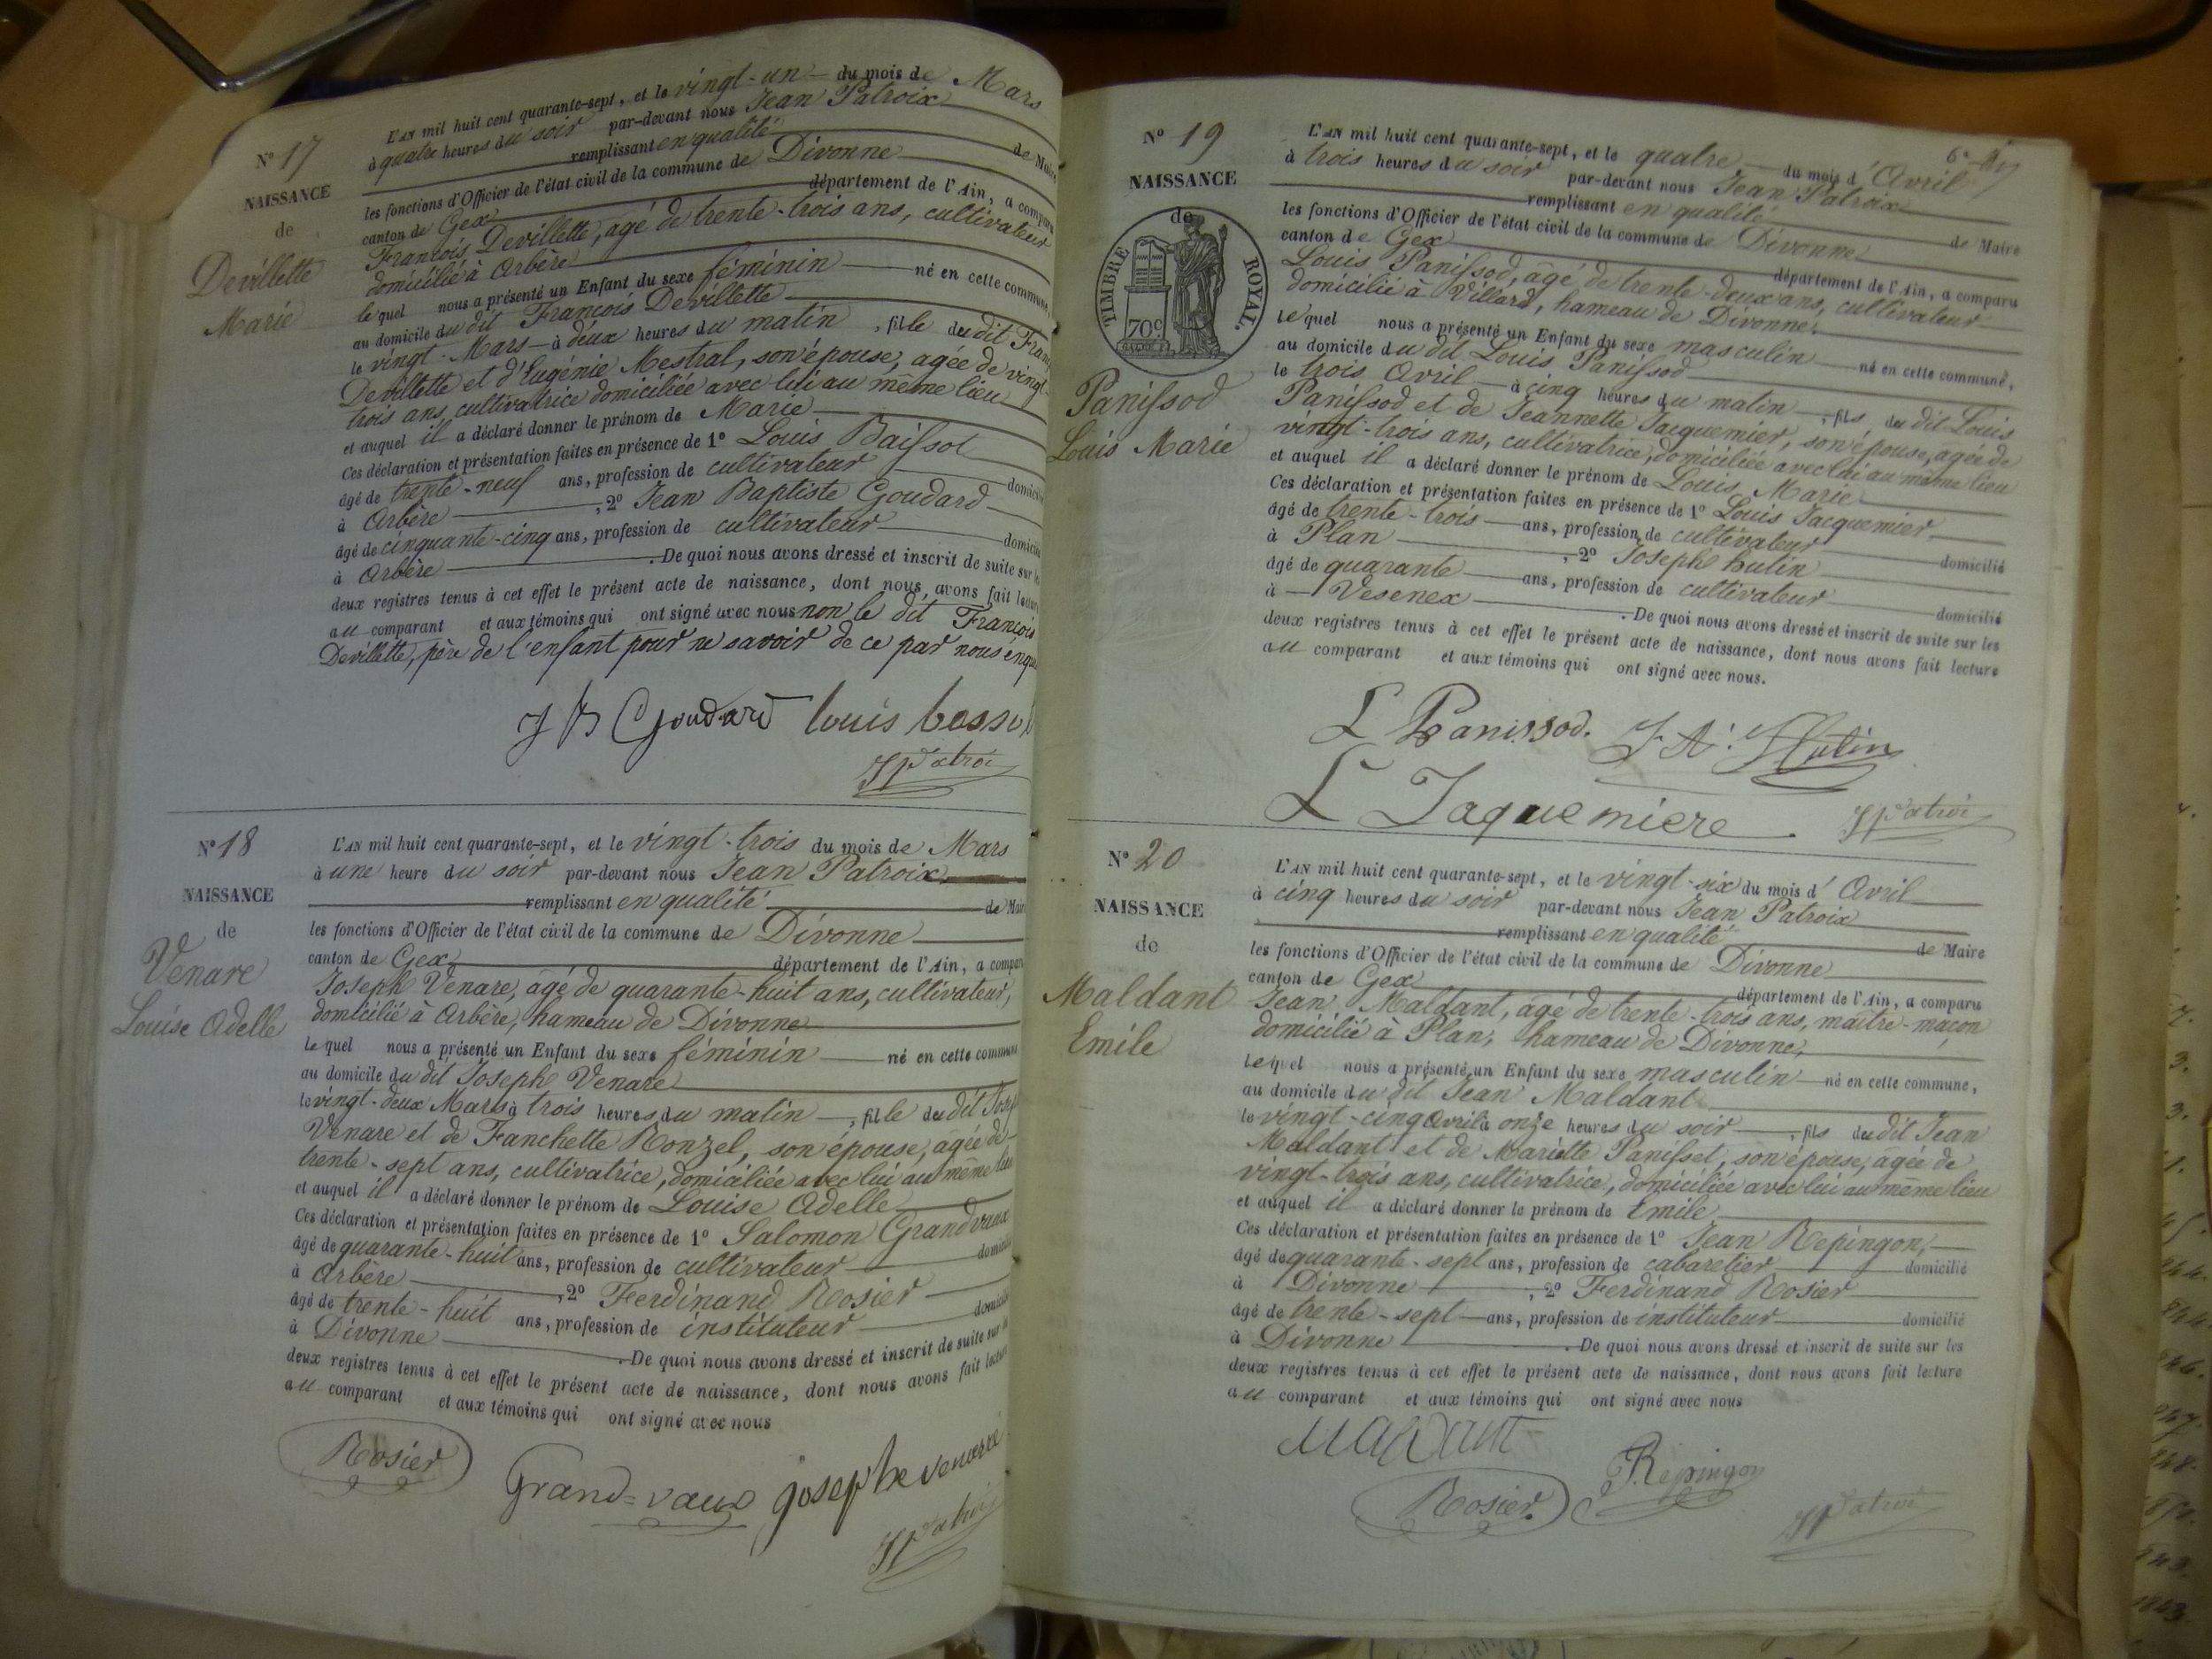 N° 17
NAISSANCE
de
Devillette
Marie
L'AN mil huit cent quarante-sept, et le vingt-un du mois de Mars
à quatre heures du soir par-devant nous Jean Patroix
remplissant en qualité de Maire
les fonctions d'Officier de l'état civil de la commune de Divonne
canton de Gex département de l'Ain, a comparu
François Devillette, agé de trente-trois ans, cultivateur
domicilié à Arbère
le quel nous a présenté un Enfant du sexe féminin né en cette commune,
au domicile du dit François Devillette
le vingt Mars à deux heures du matin, fille du dit Fran
Devillette et d'Eugénie Mestral, son épouse, agée de vingt-
trois ans, cultivatrice domiciliée avec lui au même lieu
et auquel il a déclaré donner le prénom de Marie
Ces déclaration et présentation faites en présence de 1° Louis Baissot
âgé de trente-neuf ans, profession de cultivateur domicilié
à Arbère, 2° Jean Baptiste Goudard
âgé de cinquante-cinq ans, profession de cultivateur domicilié
à Arbère. De quoi nous avons dressé et inscrit de suite sur les
deux registres tenus à cet effet le présent acte de naissance, dont nous avons fait lecture
au comparant et aux témoins qui ont signé avec nous non le dit François
Devillette, père de l'enfant pour ne savoir de ce par nous enqui
J B Goudard louis bassot
J Patroi
N° 18
NAISSANCE
de
Venare
Louise Adelle
L'AN mil huit cent quarante-sept, et le vingt-trois du mois de Mars
à une heure du soir par-devant nous Jean Patroix
remplissant en qualité de Maire
les fonctions d'Officier de l'état civil de la commune de Divonne
canton de Gex département de l'Ain, a comparu
Joseph Venare, agé de quarante-huit ans, cultivateur,
domicilié à Arbère, hameau de Divonne
le quel nous a présenté un Enfant du sexe féminin né en cette commune
au domicile du dit Joseph Venare
le vingt-deux Mars à trois heures du matin, fille du dit Josep
Venare et de Fanchette Ronzel, son épouse, agée de
trente-sept ans, cultivatrice, domiciliée avec lui au même lieu
et auquel il a déclaré donner le prénom de Louise Adelle
Ces déclaration et présentation faites en présence de 1° Salomon Grandvaux
âgé de quarante-huit ans, profession de cultivateur domicilié
à Arbère, 2° Ferdinand Rosier
âgé de trente-huit ans, profession de instituteur domicilié
à Divonne. De quoi nous avons dressé et inscrit de suite sur les
deux registres tenus à cet effet le présent acte de naissance, dont nous avons fait lecture
au comparant et aux témoins qui ont signé avec nous
Rosier Grand=vaux josephe venarre
J Patroi
N° 19
NAISSANCE
de
TIMBRE ROYAL.
70c
Panissod
Louis Marie
L'AN mil huit cent quarante-sept, et le quatre du mois d'Avril
à trois heures du soir par-devant nous Jean Patroix
remplissant en qualité de Maire
les fonctions d'Officier de l'état civil de la commune de Divonne
canton de Gex département de l'Ain, a comparu
Louis Panissod, âgé de trente-deux ans, cultivateur
domicilié à Villard, hameau de Divonne,
lequel nous a présenté un Enfant du sexe masculin né en cette commune,
au domicile du dit Louis Panissod
le trois Avril à cinq heures du matin, fils du dit Louis
Panissod et de Jeannette Jacquemier, son épouse, agée de
vingt-trois ans, cultivatrice, domiciliée avec lui au même lieu
et auquel il a déclaré donner le prénom de Louis Marie
Ces déclaration et présentation faites en présence de 1° Louis Jacquemier
âgé de trente-trois ans, profession de cultivateur domicilié
à Plan, 2° Joseph hutin
âgé de quarante ans, profession de cultivateur domicilié
à Vesenex. De quoi nous avons dressé et inscrit de suite sur les
deux registres tenus à cet effet le présent acte de naissance, dont nous avons fait lecture
au comparant et aux témoins qui ont signé avec nous.
L Panissod. Hutin
L Jaquemiere J Patroi
N° 20
NAISSANCE
de
Maldant
Emile
L'AN mil huit cent quarante-sept, et le vingt-six du mois d'Avril
à cinq heures du soir par-devant nous Jean Patroix
remplissant en qualité de Maire
les fonctions d'Officier de l'état civil de la commune de Divonne
canton de Gex département de l'Ain, a comparu
Jean Maldant, agé de trente-trois ans, maître-maçon
domicilié à Plan, hameau de Divonne,
lequel nous a présenté un Enfant du sexe masculin né en cette commune,
au domicile du dit Jean Maldant
le vingt-cinq Avril à onze heures du soir, fils du dit Jean
Maldant et de Mariette Panisset, son épouse, agée de
vingt-trois ans, cultivatrice, domiciliée avec lui au même lieu
et auquel il a déclaré donner le prénom de Emile
Ces déclaration et présentation faites en présence de 1° Jean Repingon,
âgé de quarante-sept ans, profession de cabaretier domicilié
à Divonne, 2° Ferdinand Rosier
âgé de trente-sept ans, profession de instituteur domicilié
à Divonne. De quoi nous avons dressé et inscrit de suite sur les
deux registres tenus à cet effet le présent acte de naissance, dont nous avons fait lecture
au comparant et aux témoins qui ont signé avec nous
Maldant
Rosier. Repingon
J Patroi